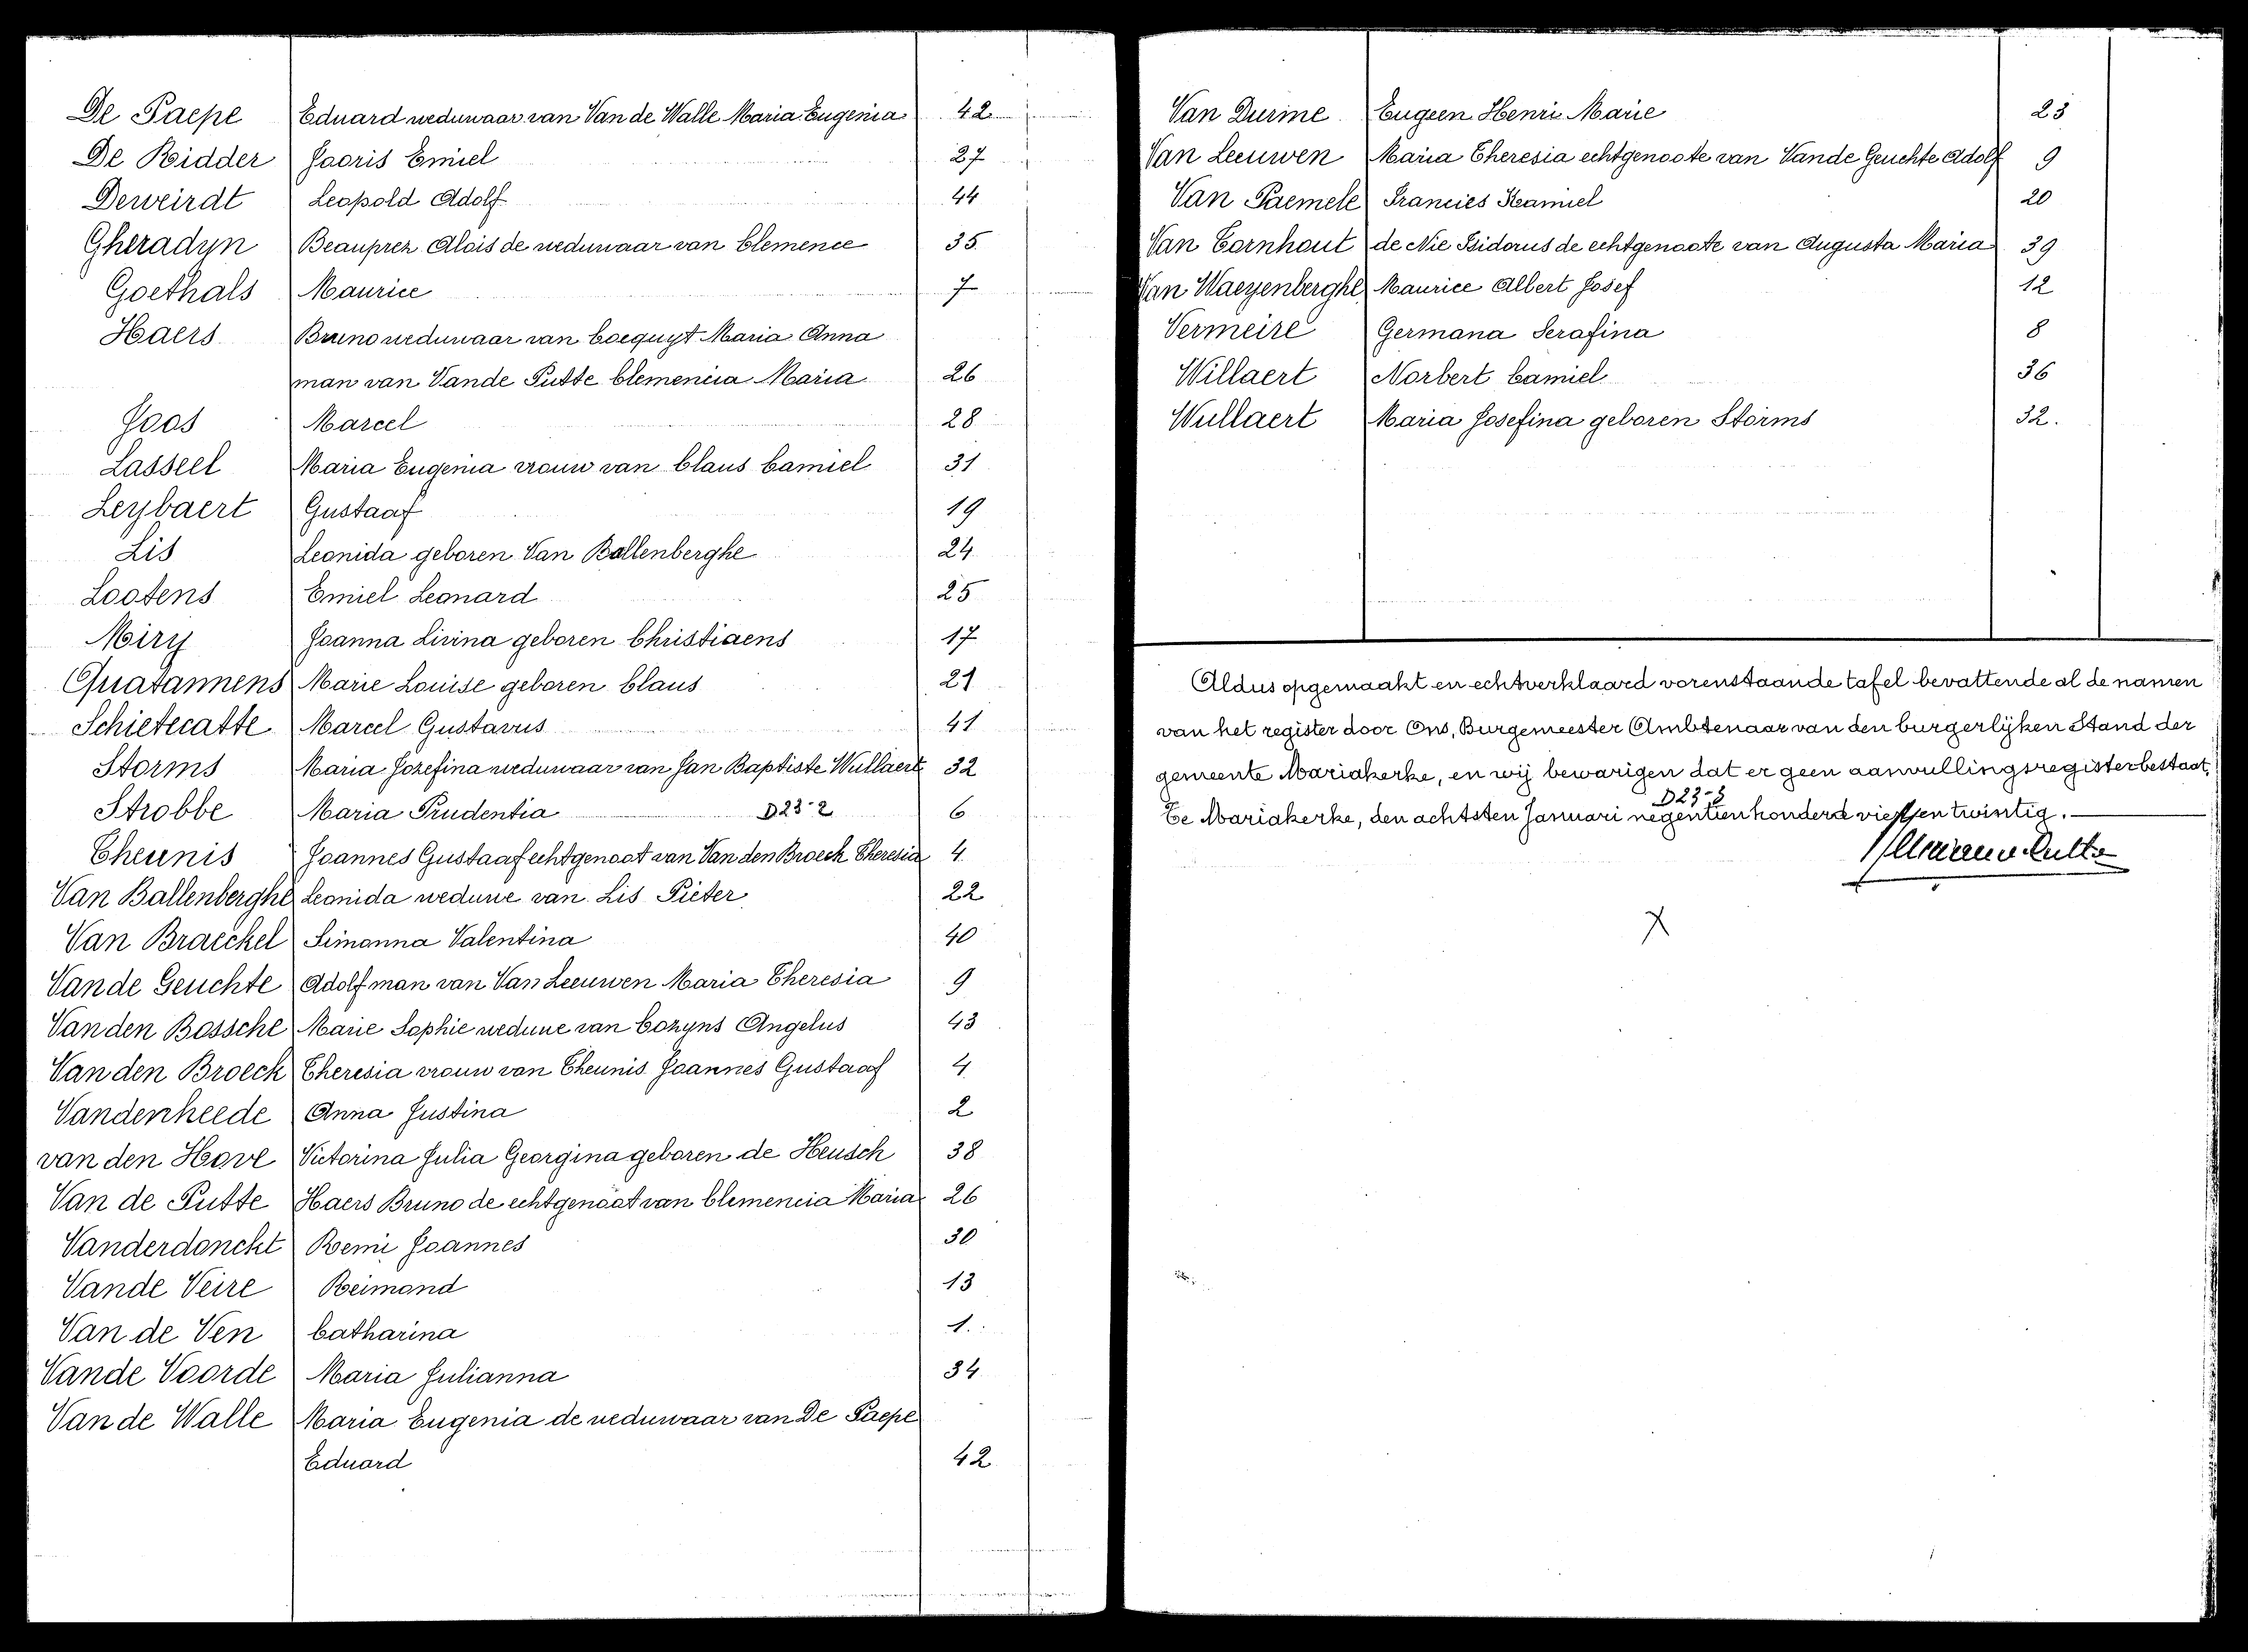 De Paepe Eduard weduwaar van Van de Walle Maria Eugenia 42
De Ridder Jooris Emiel 27
Deweirdt Leopold Adolf 44
Gheradyn Beauprez Alois de weduwaar van Clemence 35
Goethals Maurice 7
Haers Bruno weduwaar van Cocquyt Maria Anna
man van Vande Putte Clemencia Maria 26
Joos Marcel 28
Lasseel Maria Eugenia vrouw van Claus Camiel 31
Leybaert Gustaaf 19
Lis Leonida geboren Van Ballenberghe 24
Lootens Emiel Leonard 25
Miry Joanna Livina geboren Christiaens 17
Quatannens Marie Louise geboren Claus 21
Schietecatte Marcel Gustavus 41
Storms Maria Jozefina weduwaar van Jan Baptiste Wullaert 32
Strobbe Maria Prudentia D23-2 6
Theunis Joannes Gustaaf echtgenoot van Van den Broeck Theresia 4
Van Ballenberghe Leonida weduwe van Lis Pieter 22
Van Braeckel Simonna Valentina 40
Vande Geuchte Adolf man van Van Leeuwen Maria Theresia 9
Van den Bossche Marie Sophie weduwe van Cozyns Angelus 43
Van den Broeck Theresia vrouw van Theunis Joannes Gustaaf 4
Vandenheede Anna Justina 2
van den Hove Victorina Julia Georgina geboren de Heusch 38
Van de Putte Haers Bruno de echtgenoot van Clemencia Maria 26
Vanderdonckt Remi Joannes 30
Vande Veire Reimond 13
Van de Ven Catharina 1.
Vande Voorde Maria Julianna 34
Van de Walle Maria Eugenia de weduwaar van De Paepe
Eduard 42
Van Durme Eugeen Henri Marie 23
Van Leeuwen Maria Theresia echtgenoote van Vande Geuchte Adolf 9
Van Paemele Francies Kamiel 20
Van Tornhout de Nie Isidorus de echtgenoote van Augusta Maria 39
Van Waeyenberghe Maurice Albert Josef 12
Vermeire Germana Serafina 8
Willaert Norbert Camiel 36
Wullaert Maria Josefina geboren Storms 32.
Aldus opgemaakt en echtverklaard vorenstaande tafel bevattende al de namen
van het register door Ons, Burgemeester Ambtenaar van den burgerlijken Stand der
gemeente Mariakerke, en wij bewarigen dat er geen aanvullingsregister bestaat,
D23-3
Te Mariakerke, den achtsten Januari negentien honderd vier en twintig.